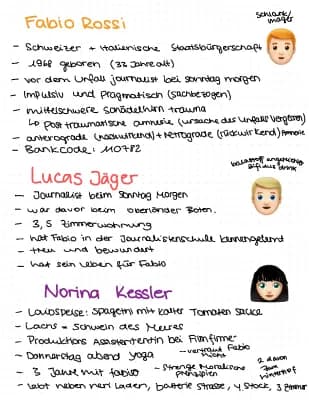 Fabio Rossi
schlank/
mager
- Schweizer + Italienische Staatsbürgerschaft
- 1968 geboren (33 Jahre alt)
- vor dem Unfall journalist bei sonntag morgen
- Impulsiv und Pragmatisch (sachbezogen)
- mittelschwere Schädelhirn trauma
↳ Post traumatische amnesie (ursache des Unfall vergessen)
- anterograde (nachwirkend) + Retrograde (rückwirkend) Amnesie
- Bankcode: 110782
Lucas Jäger
- Journalist beim Sonntag Morgen
- war davor beim oberländer Boten.
- 3,5 Zimmerwohnung
- hat Fabio in der Journalistenschule kennengelernt
- treu und bewundert
- hat sein Leben für Fabio
Norina Kessler
- Lieblospeise: Spagetti mit kalter Tomaten sauce
- Lachs = schwein des Meeres
- Produktions Assistentin bei Filmfirme
- vertraud Fabio
nicht
- Donnerstag abend Yoga
- 3 Jahre mit fabio
- Strenge Moralische
Prinzipien
2 davon
- lebt neben nerl Laden, batterie strasse, 4 Stock, 3 Zimmer